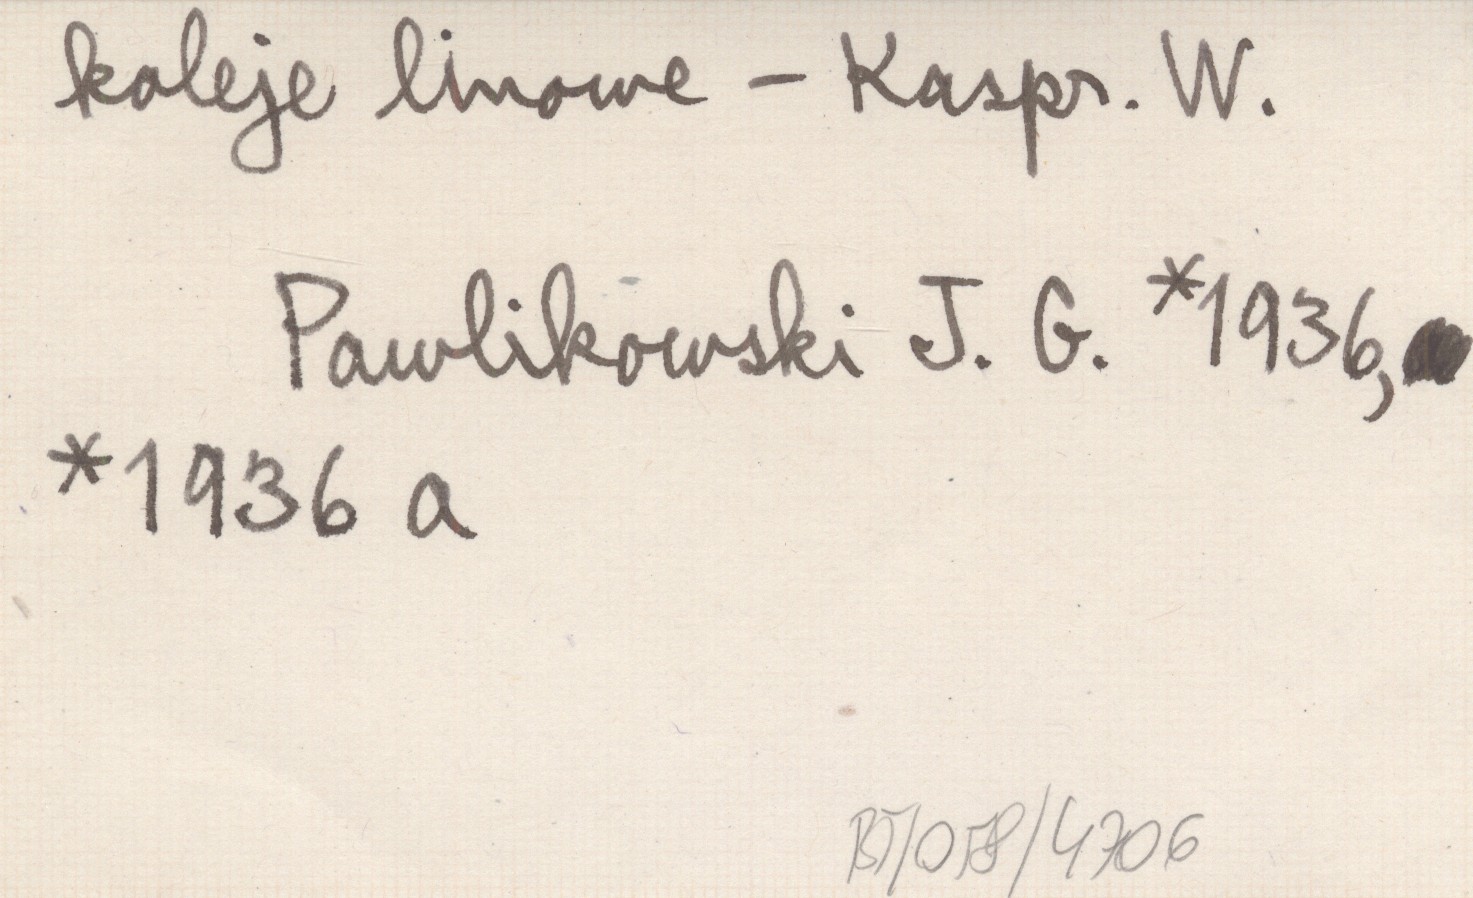 koleje linowe - Kaspr. W.
Pawlikowski J. G. *1936,
*1936 a
BT/058/4706